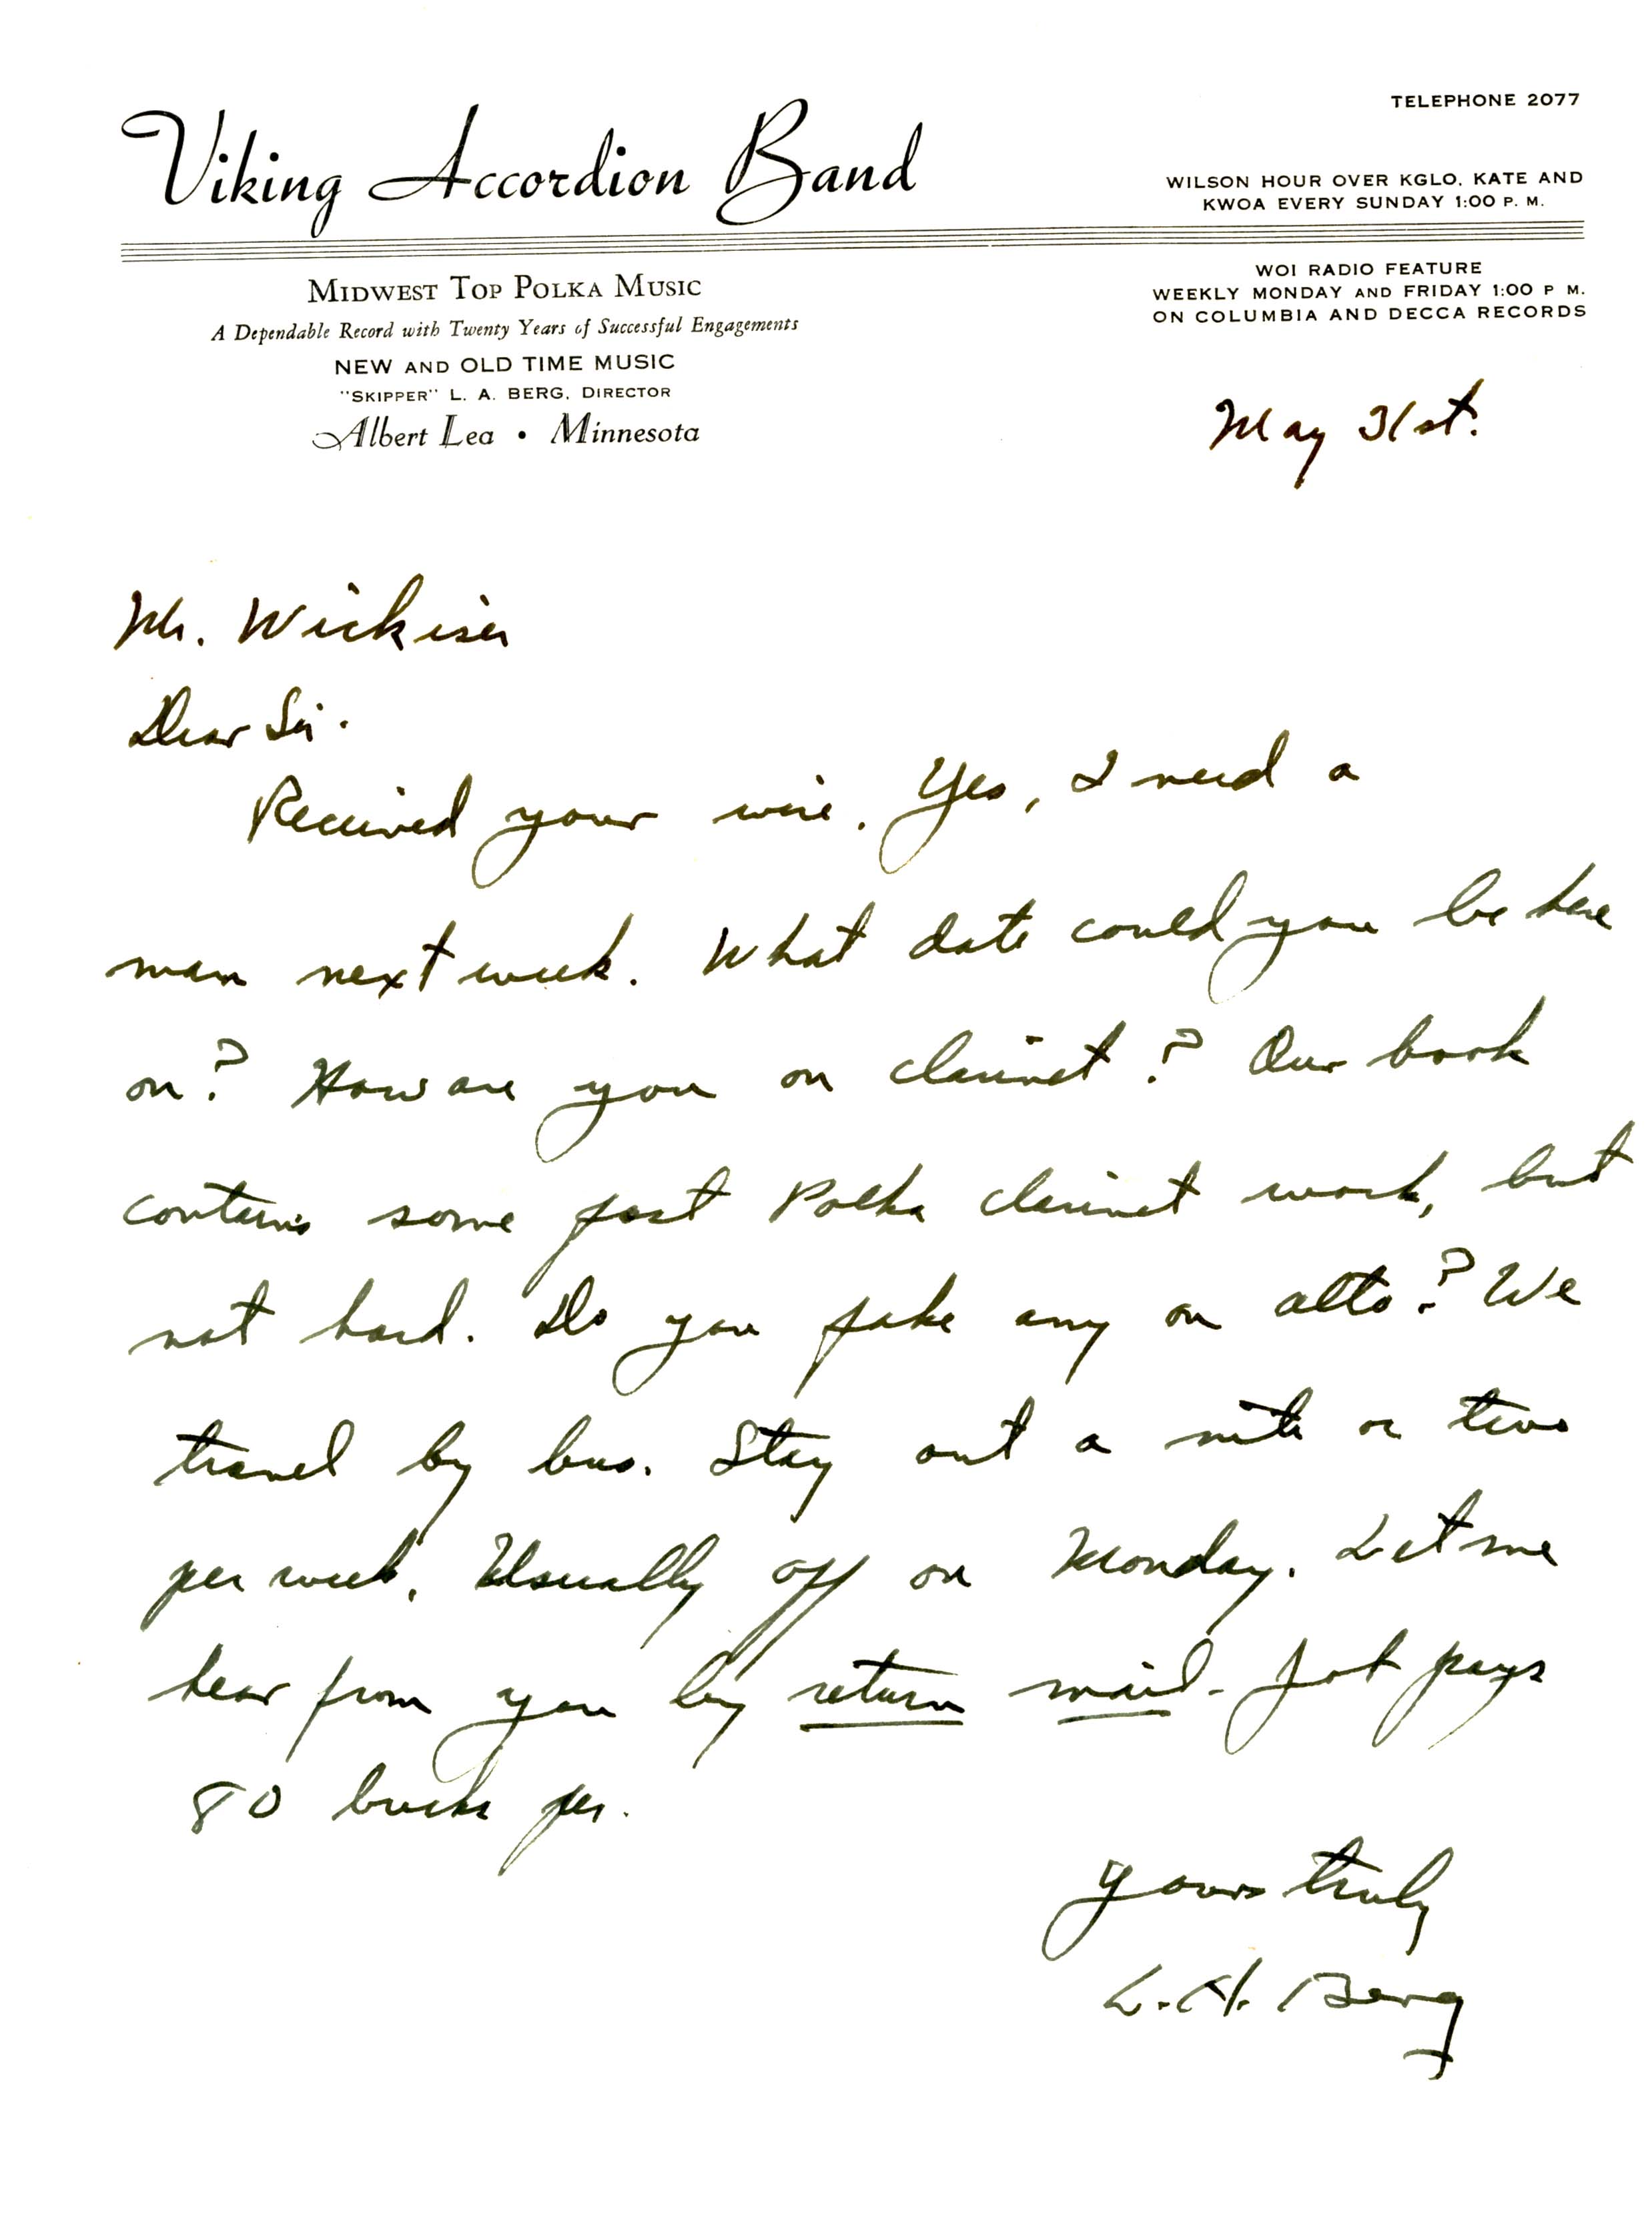 TELEPHONE 2077
Viking Accordion Band
WILSON HOUR OVER KGLO, KATE AND
KWOA EVERY SUNDAY 1:00 P. M.
MIDWEST TOP POLKA MUSIC
A Dependable Record with Twenty Years of Successful Engagements
NEW AND OLD TIME MUSIC
"SKIPPER" L. A. BERG, DIRECTOR
Albert Lea • Minnesota
WOI RADIO FEATURE
WEEKLY MONDAY AND FRIDAY 1:00 P M.
ON COLUMBIA AND DECCA RECORDS
May 31st.
Mr. Wickiser
Dear Sir.
Received your wire. Yes, I need a
man next week. What date could you be here
on? How are you on clarinet? Our book
contains some fast Polka clarinet work, but
not hard. Do you fake any on alto? We
travel by bus. Stay out a nite or two
per week. Usually off on Monday. Let me
hear from you by return mail - Job pays
80 bucks per.
Yours truly
L. A. Berg